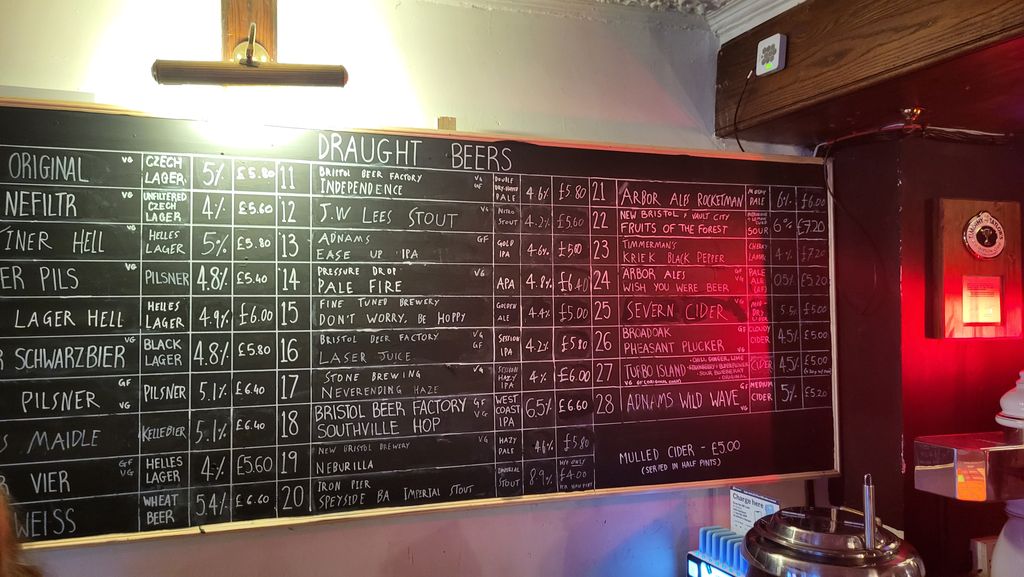 DRAUGHT BEERS
ORIGINAL VG CZECH LAGER 5% £5.80
NEFILTR VG UNFILTERED CZECH LAGER 4% £5.60
INER HELL HELLES LAGER 5% £5.80
ER PILS VG PILSNER 4.8% £5.40
LAGER HELL HELLES LAGER 4.9% £6.00
R SCHWARZBIER VG BLACK LAGER 4.8% £5.80
PILSNER GF VG PILSNER 5.1% £6.40
S MAIDLE KELLEBIER 5.1% £6.40
VIER GF VG HELLES LAGER 4% £5.60
WEISS WHEAT BEER 5.4% £6.60
11 BRISTOL BEER FACTORY
INDEPENDENCE VG GF PALE 4.6% £5.80
12 J.W LEES STOUT VG NITRO STOUT 4.2% £5.60
13 ADNAMS
EASE UP IPA GF GOLD IPA 4.6% £5.00
14 PRESSURE DROP
PALE FIRE VG APA 4.8% £6.40
15 FINE TUNED BREWERY
DON'T WORRY, BE HOPPY GOLDEN ALE 4.4% £5.00
16 BRISTOL BEER FACTORY
LASER JUICE VG GF SESSION IPA 4.2% £5.80
17 STONE BREWING
NEVERENDING HAZE VG SESSION HAZY IPA 4% £6.00
18 BRISTOL BEER FACTORY
SOUTHVILLE HOP GF VG WEST COAST IPA 6.5% £6.60
19 NEW BRISTOL BREWERY
NEBURILLA VG HAZY PALE 4.6% £5.80
20 IRON PIER
SPEYSIDE BA IMPERIAL STOUT IMPERIAL STOUT 8.9% £4.00
21 ARBOR ALES ROCKETMAN PALE 6% £6.00
22 NEW BRISTOL / VAULT CITY
FRUITS OF THE FOREST SOUR 6% £7.20
23 TIMMERMAN'S
KRIEK BLACK PEPPER CHERRY 4% £7.20
24 ARBOR ALES
WISH YOU WERE BEER PALE ALE 0.5% £5.20
25 SEVERN CIDER VG CIDER 5.5% £5.00
26 BROADOAK
PHEASANT PLUCKER GF CLOUDY CIDER 4.5% £5.00
27 TURBO ISLAND CIDER 4.5% £5.00
28 ADNAMS WILD WAVE GF VG MEDIUM CIDER 5% £5.20
MULLED CIDER - £5.00
(SERVED IN HALF PINTS)
Charge here